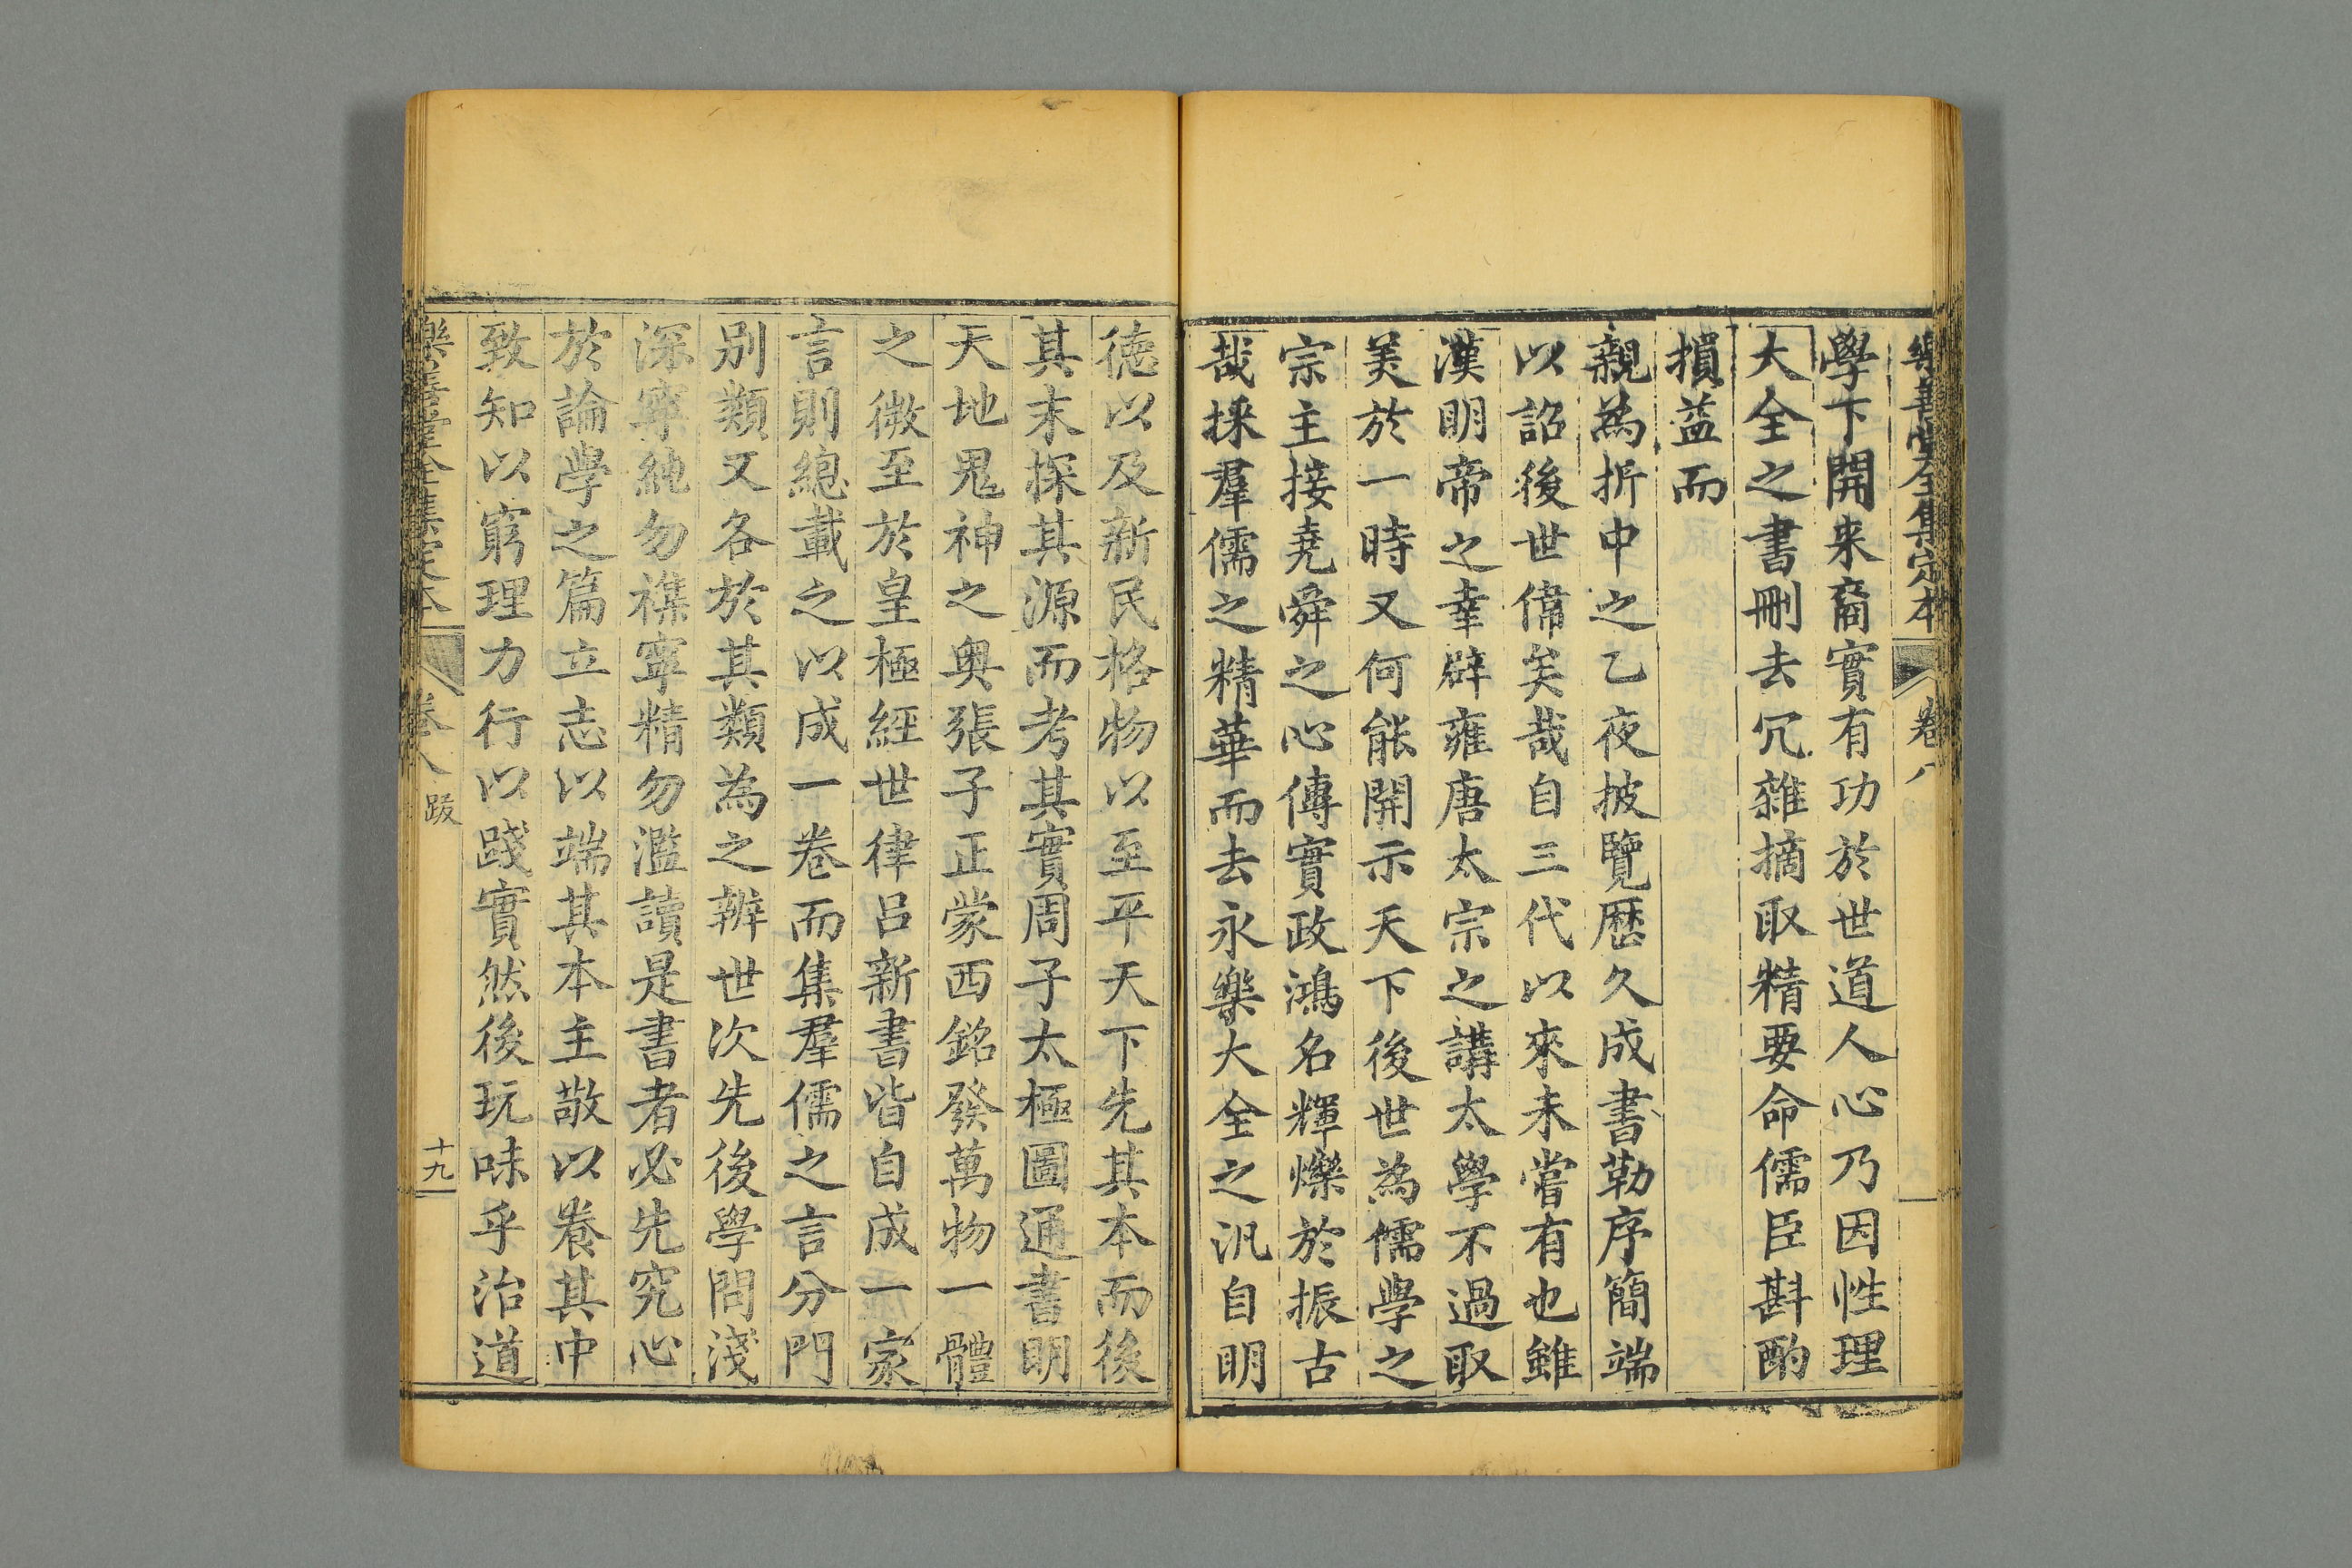 樂善堂全集定本 卷八
學下開来裔實有功於世道人心乃因性理
大全之書刪去冗雜摘取精要命儒臣斟酌
損益而
親為折中之乙夜披覽歴久成書勒序簡端
以詔後世偉矣哉自三代以來未嘗有也雖
漢明帝之幸辟雍唐太宗之講太學不過取
美於一時又何能開示天下後世為儒學之
宗主接堯舜之心傳實政鴻名輝爍於振古
哉採羣儒之精華而去永樂大全之汎自明
德以及新民格物以至平天下先其本而後
其末探其源而考其實周子太極圖通書明
天地鬼神之奥張子正蒙西銘發萬物一體
之微至於皇極經世律呂新書皆自成一家
言則總載之以成一卷而集羣儒之言分門
别類又各於其類為之辨世次先後學問淺
深寧純勿襍寧精勿濫讀是書者必先究心
於論學之篇立志以端其本主敬以養其中
致知以窮理力行以踐實然後玩味乎治道
樂善堂全集定本 卷八 跋 十九